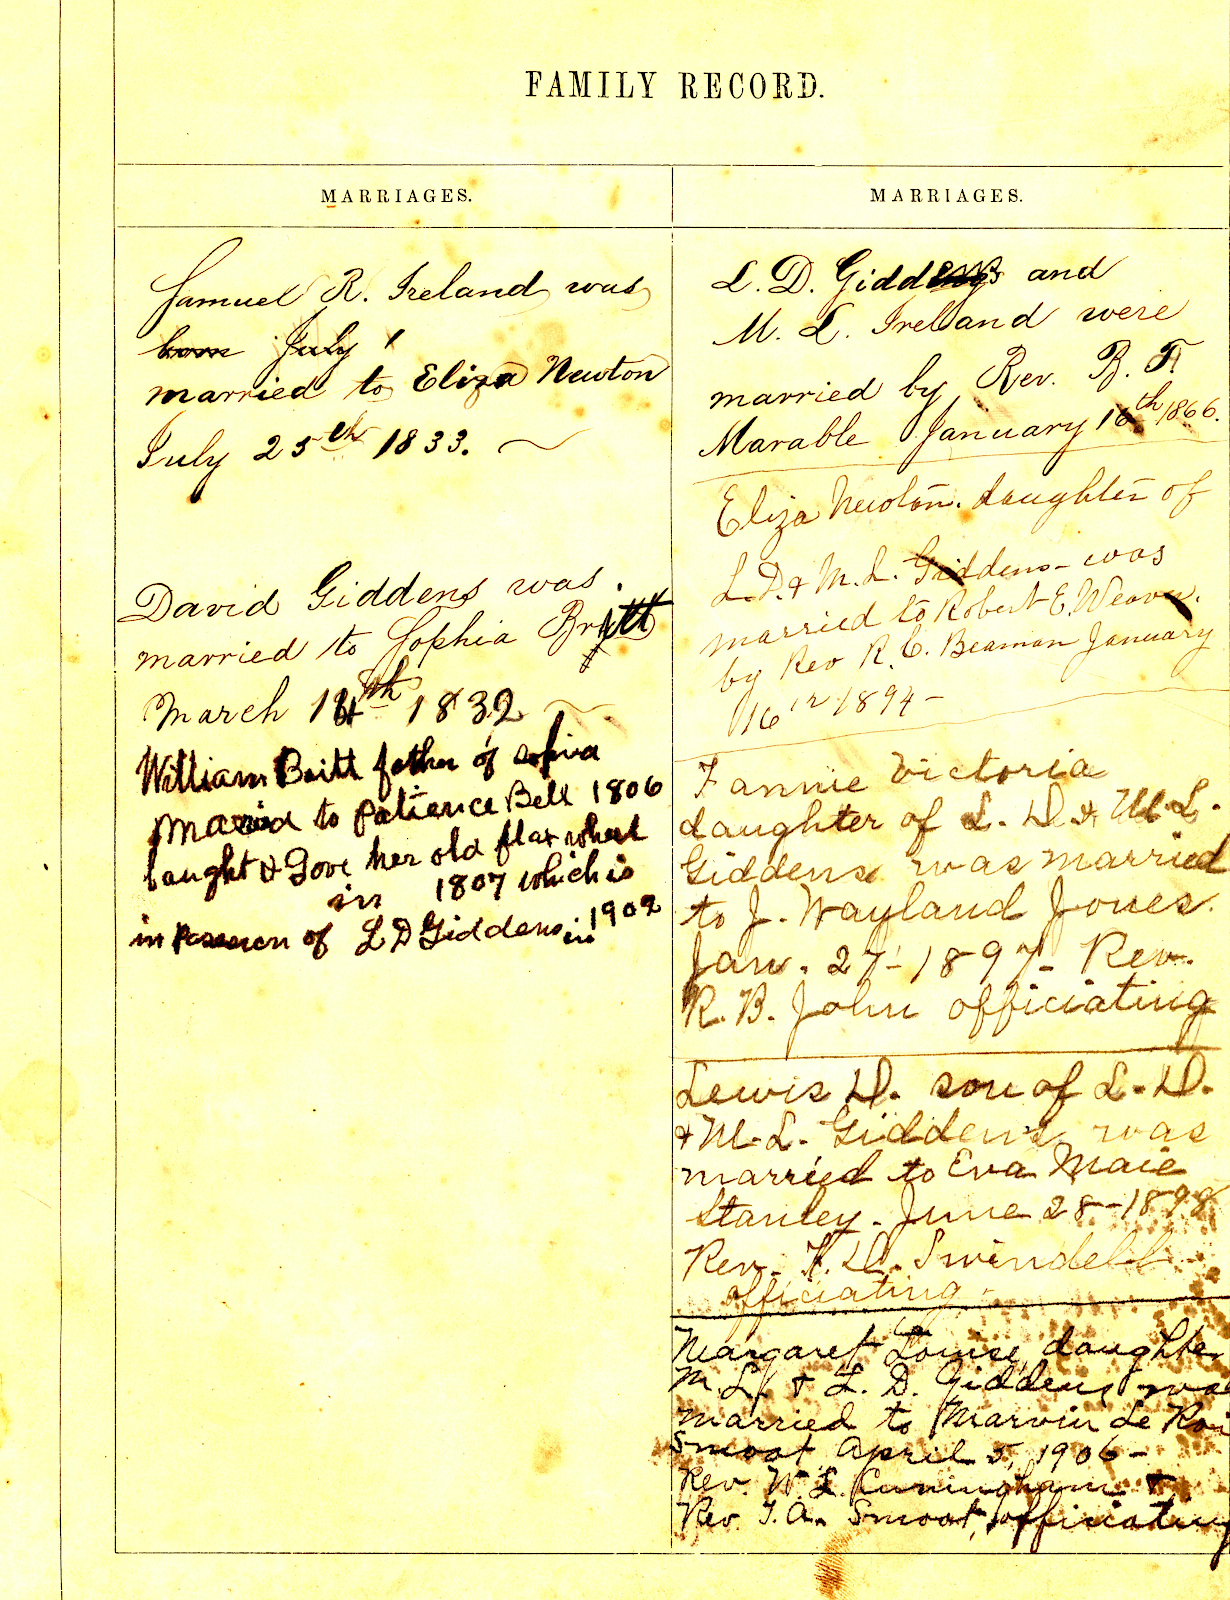 FAMILY RECORD.
MARRIAGES.
Samuel R. Ireland was
born July 1
married to Eliza Newton
July 25th 1833.
David Giddens was
married to Sophia Britt
March 14th 1832
William Britt father of sophia
married to Patience Bell 1806
baught & Gove her old flax wheel
in 1807 which is
in Possesion of L D Giddens in 1902
MARRIAGES.
L. D. Giddens and
M. L. Ireland were
married by Rev. B. F
Marable January 16th 1866.
Eliza Newton. daughter of
L. D. & M. L. Giddens - was
married to Robert E. Weaver.
by Rev R. C. Beaman January
16th 1894 -
Fannie Victoria
daughter of L. D. & M. L.
Giddens was married
to J. Wayland Jones.
Jan. 27 - 1897 - Rev.
R. B. John officiating
Lewis D. son of L. D.
& M. L. Giddens was
married to Eva Maie
Stanley - June 28 - 1898
Rev. F. D. Swindell
officiating -
Margaret Louise, daughter
M. L. & L. D. Giddens was
married to Marvin Le Roi
Smoot April 5, 1906 -
Rev. W. L. Cuningham &
Rev. T. A. Smoot, officiating